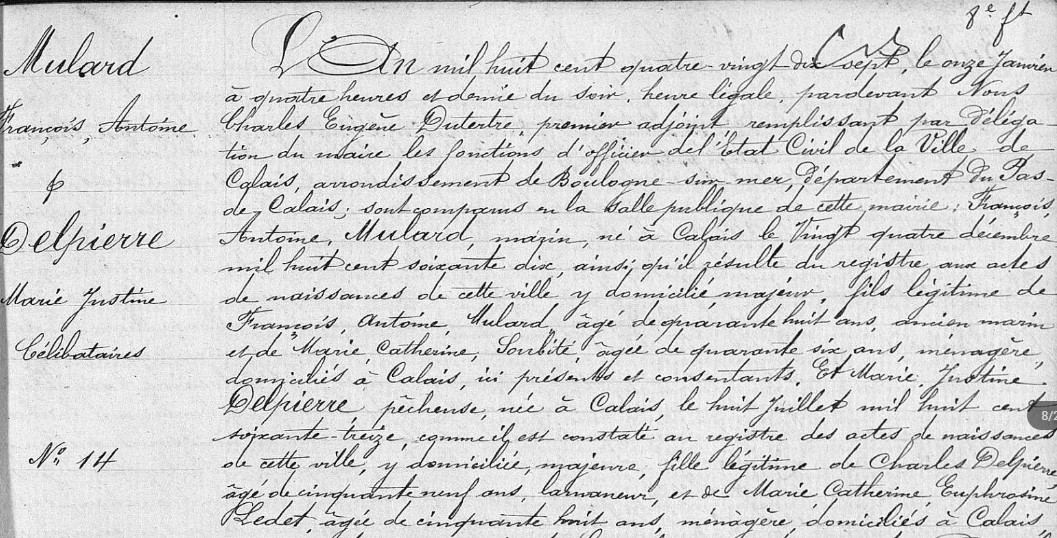 8e ft
Mulard
François, Antoine
&
Delpierre
Marie Justine
Célibataires
No 14
L'An mil huit cent quatre-vingt dix sept, le onze Janvier
à quatre heures et demie du soir, heure légale, pardevant Nous
Charles Eugène Dutertre, premier adjoint remplissant par déléga-
tion du maire les fonctions d'officier de l'Etat Civil de la Ville de
Calais, arrondissement de Boulogne-sur-mer, département du Pas-
de Calais; sont comparus en la salle publique de cette mairie: François,
Antoine, Mulard, marin, né à Calais le Vingt quatre décembre
mil huit cent soixante dix, ainsi qu'il résulte du registre aux actes
de naissances de cette ville y domicilié majeur, fils légitime de
François, Antoine Mulard, âgé de quarante huit ans, ancien marin
et de Marie, Catherine, Soubité, âgée de quarante six ans, ménagère,
domiciliés à Calais, ici présents et consentants. Et Marie, Justine
Delpierre, pêcheuse, née à Calais, le huit Juillet mil huit cent
soixante-treize, comme il est constaté au registre des actes de naissances
de cette ville, y domiciliée, majeure, fille légitime de Charles Delpierre
âgé de cinquante neuf ans, lamaneur, et de Marie Catherine Euphrosine
Ledet, âgée de cinquante huit ans, ménagère, domiciliés à Calais,
8/2